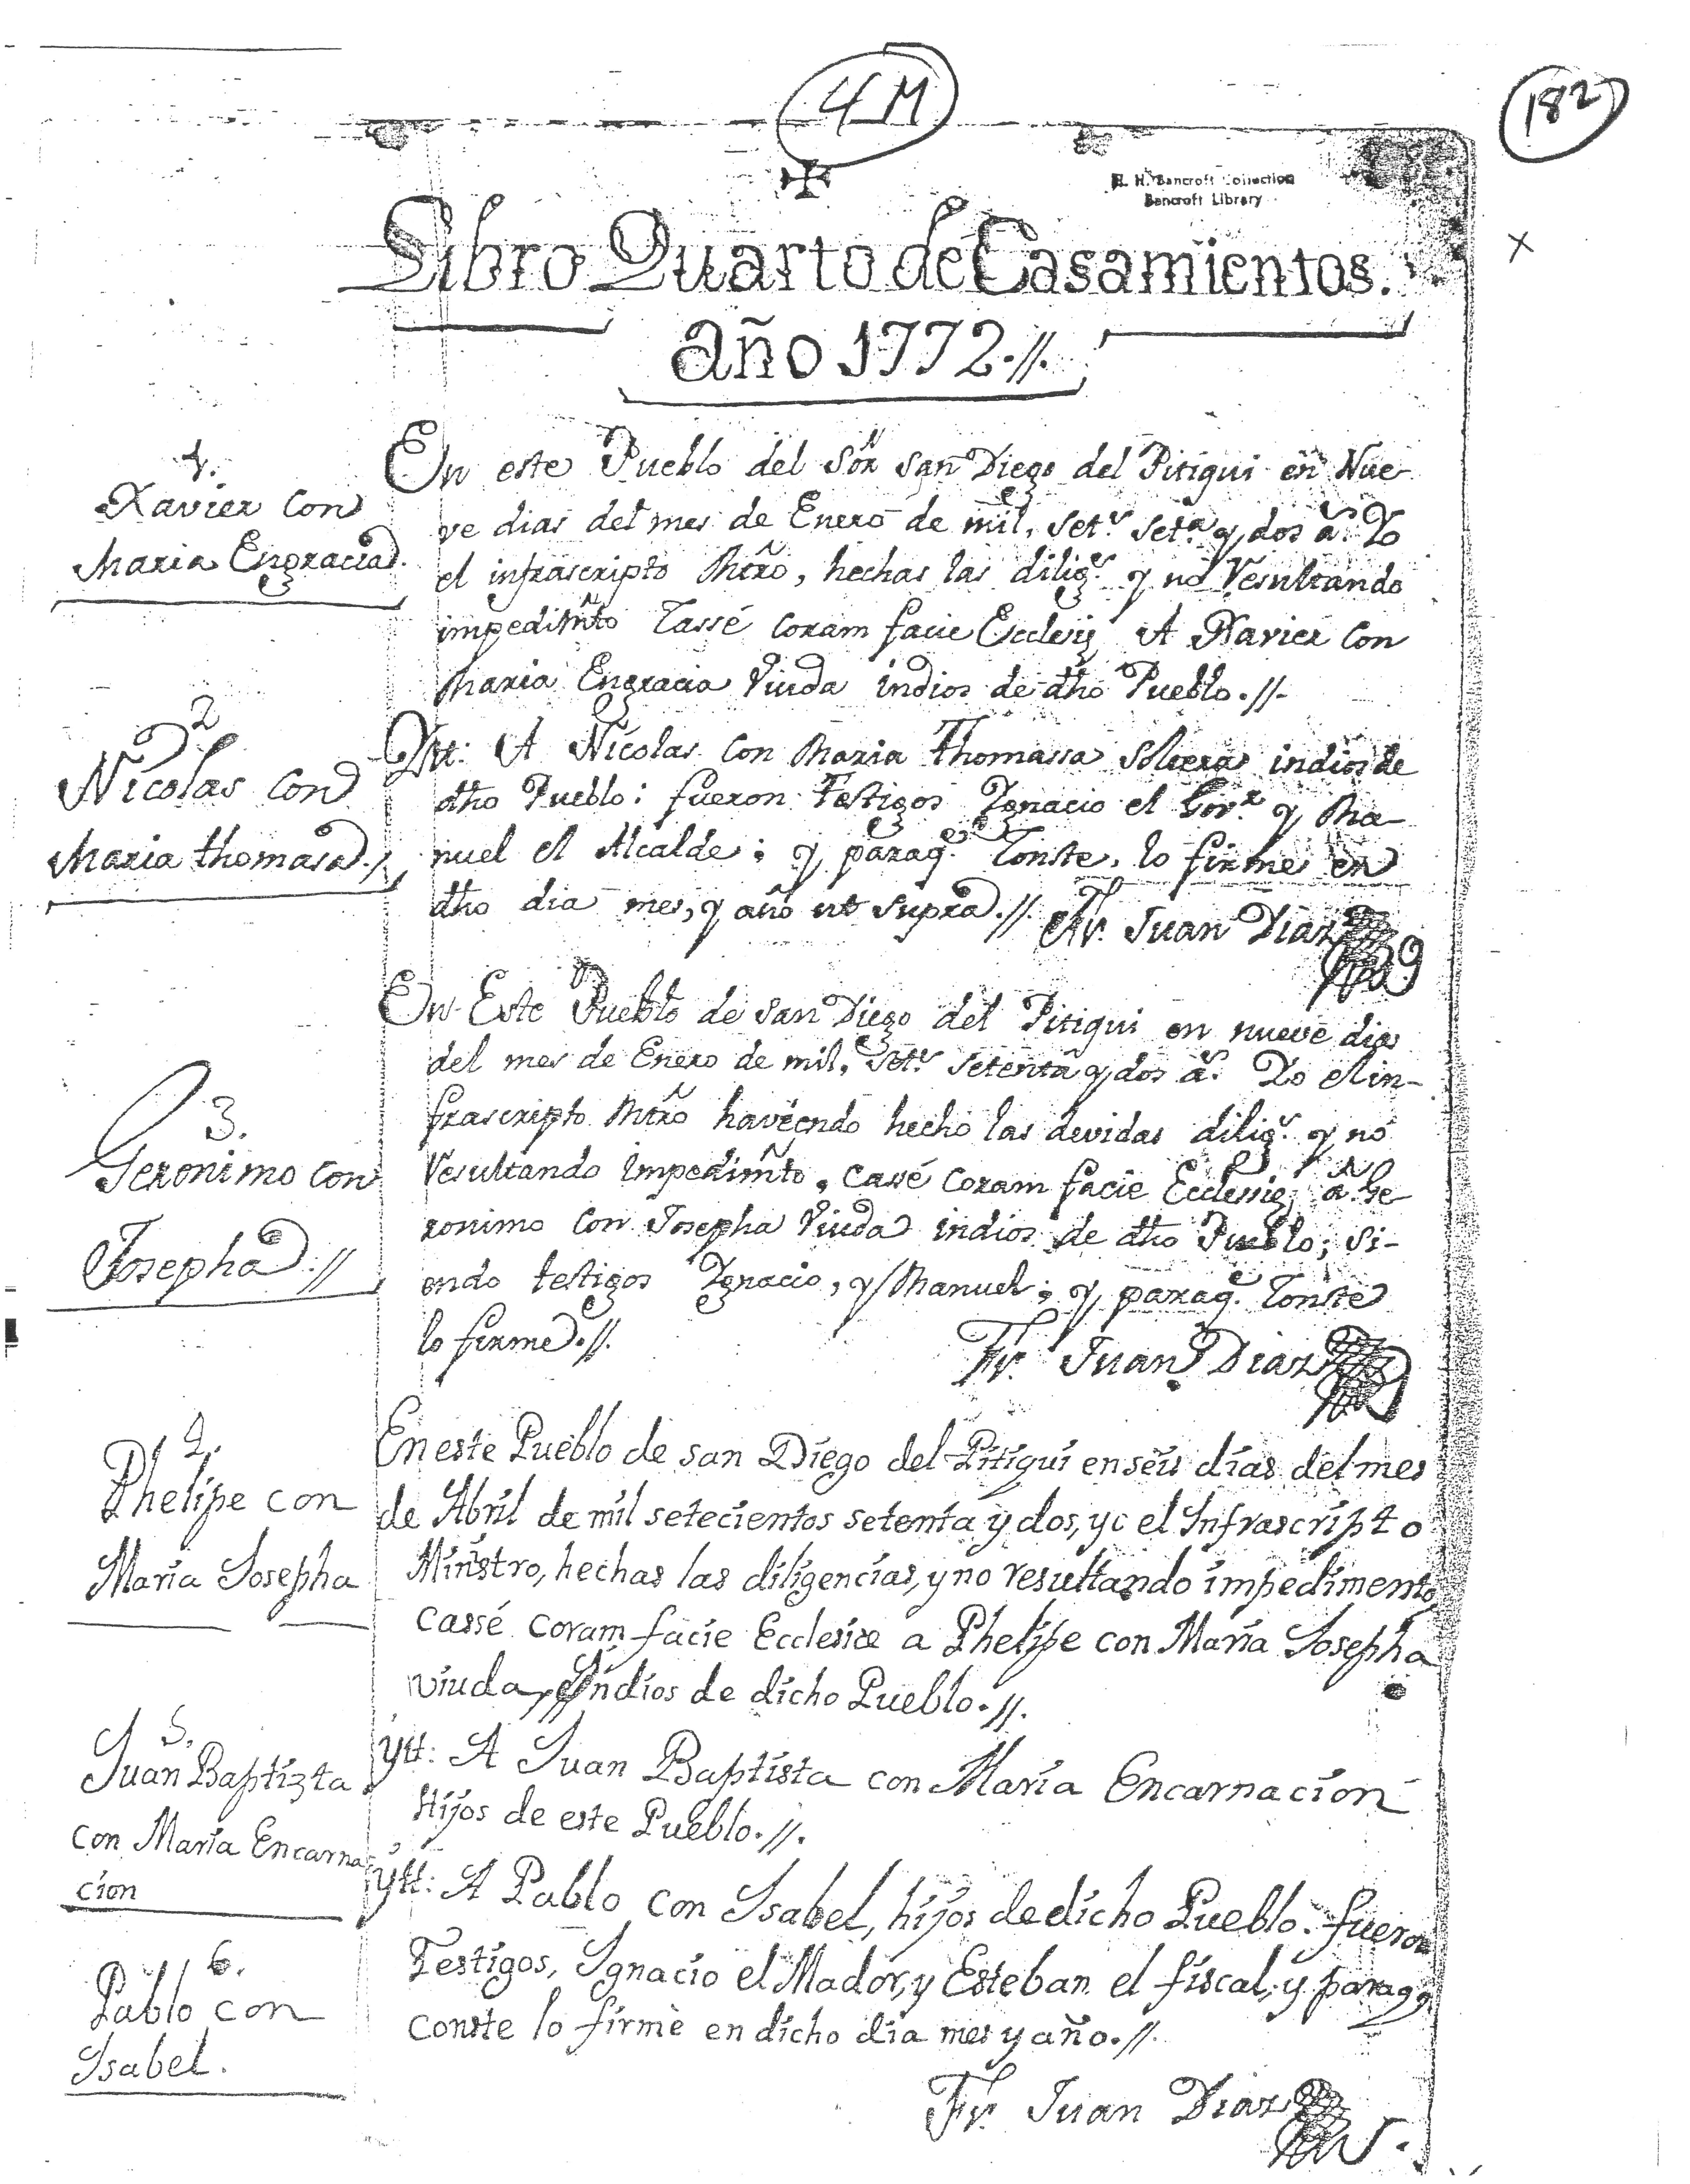 4M
182
H. H. Bancroft Collection
Bancroft Library
X
Libro Quarto de Casamientos.
año 1772.//.
1.
Xavier con
Maria Engracia.
En este Pueblo del Sôr San Diego del Pitiqui en Nue
ve dias del mes de Enero de mil, set.s set.a y dos a.s Yo
el infrascripto Mrõ, hechas las dilig.s y no resultando
impedimto Cassé coram facie Ecclesię A Xavier con
Maria Engracia Viuda indios de dho Pueblo.//.
2
Nicolas con
Maria thomasa./.
Ytt: A Nicolas con Maria Thomassa Soltera indios de
dho Pueblo: fueron Testigos Ygnacio el Gov.r y Ma-
nuel el Alcalde; y paraq.e Conste, lo firme en
dho dia mes, y año ut supra.//. Fr. Juan Diaz
3.
Geronimo con
Josepha.//
En Este Pueblo de San Diego del Pitiqui en nueve dias
del mes de Enero de mil, set.s setenta y dos a.s Yo el in-
frascripto Mrõ haviendo hecho las devidas dilig.s y no
resultando impedimto, cassé coram facie Ecclesię, a Ge
ronimo con Josepha Viuda indios de dho Pueblo; si-
endo testigos Ygnacio, y Manuel; y paraq.e Conste
lo firme.//.
Fr. Juan Diaz
4.
Phelipe con
Maria Josepha
En este Pueblo de san Diego del Pitiqui en seis dias del mes
de Abril de mil setecientos setenta y dos, yo el Infrascripto
Ministro, hechas las diligencias, y no resultando impedimento
cassé coram facie Ecclesiæ a Phelipe con Maria Josepha
viuda, Indios de dicho Pueblo.//.
5.
Juan Baptista
con Maria Encarna
cion
ytt: A Juan Baptista con Maria Encarnacion
Hijos de este Pueblo.//.
6.
Pablo con
Ysabel.
ytt: A Pablo con Ysabel, hijos de dicho Pueblo. fueron
Testigos, Ygnacio el Mador, y Esteban el fiscal; y paraq.e
conste lo firmè en dicho dia mes y año.//.
Fr. Juan Diaz